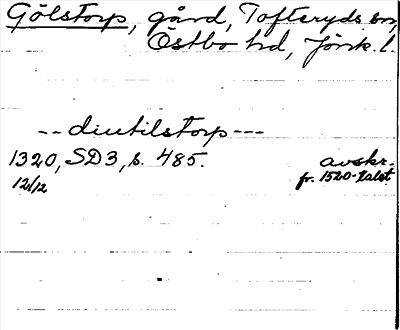 Gölstorp, gård, Tofteryds sn,
Östbo hd, Jönk. l.
-- diutilstorp ---
1320, SD3, s. 485. avskr.
12/12 fr. 1520-talet